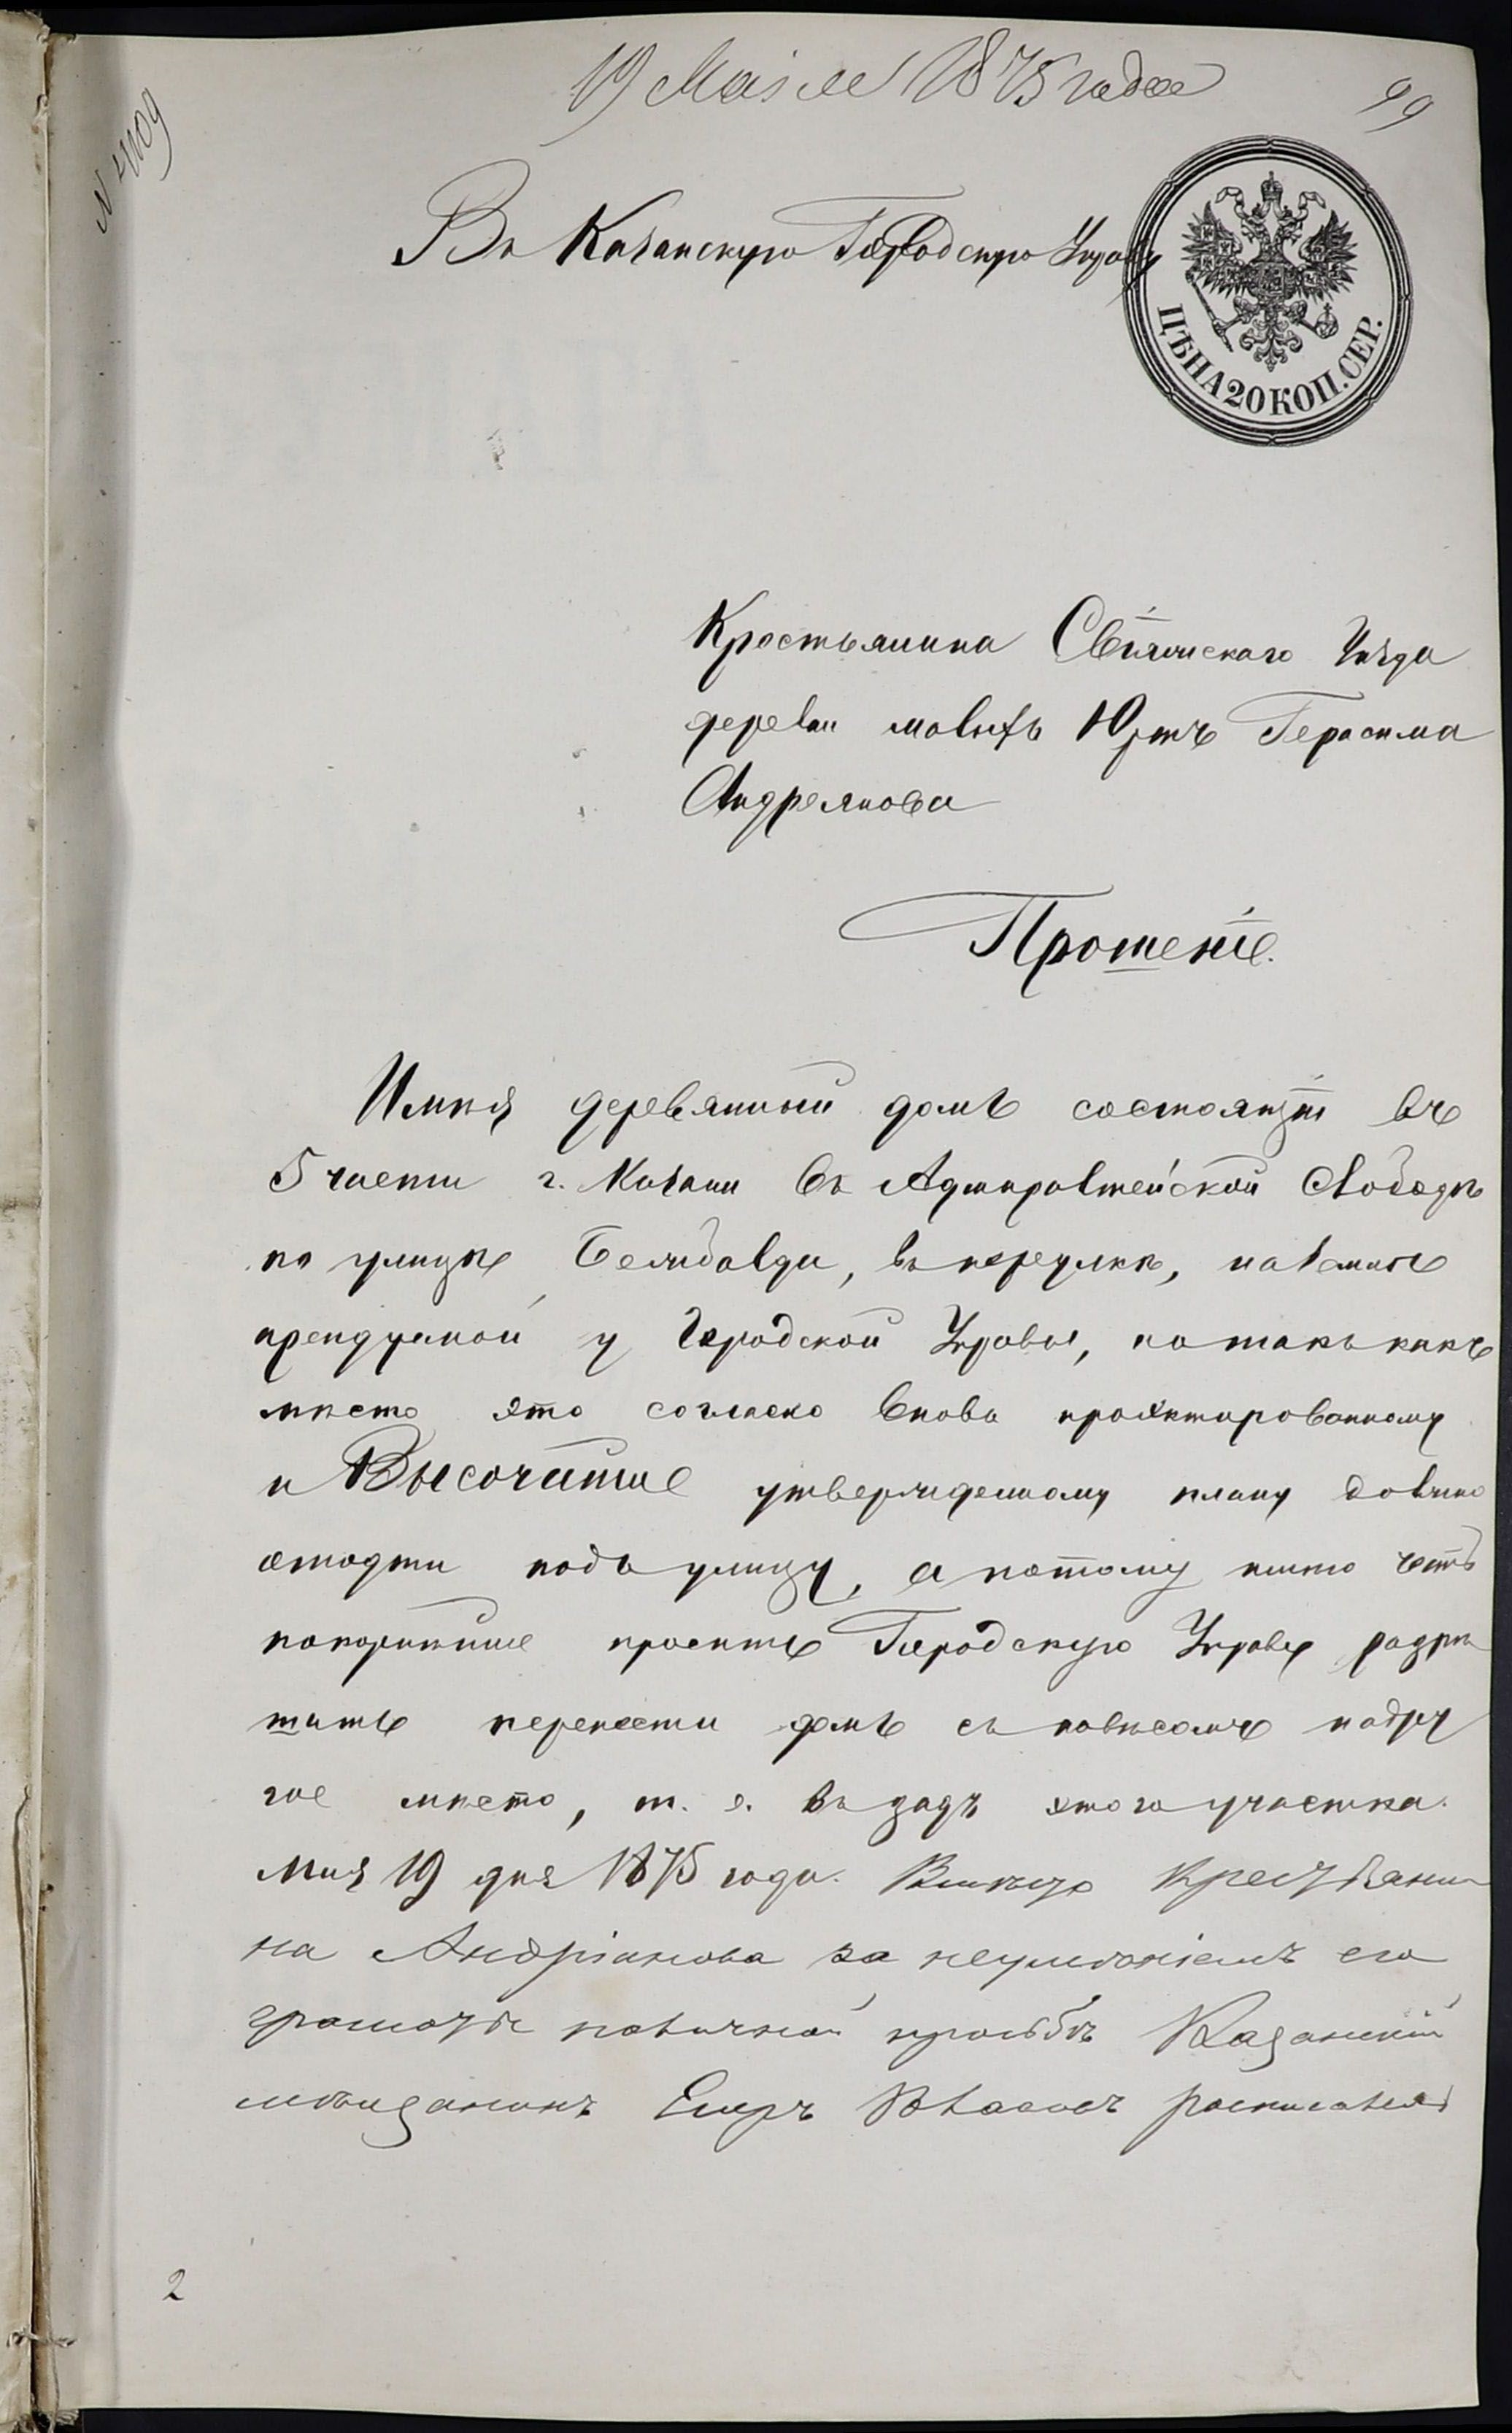 19 Маія 1875 года
99
N 4109
Въ Казанскую Городскую Управу
ЦѢНА 20 КОП. СЕР.
Крестьянина Свіяжскаго Уѣзда
деревни малыхъ Юртъ Герасима
Андреянова
Прошеніе.
Имѣя деревянный домъ состоящій въ
5 части г. Казани въ Адмиралтейской Слободѣ
по улицѣ, въ переулкѣ, на землѣ
арендуемой у Городской Управы, но такъ какъ
мѣсто это согласно вновь проэктированному
и Высочайше утвержденному плану должно
отойдти подъ улицу, а потому имѣю честь
покорнѣйше просить Городскую Управу разрѣ
шить перенести домъ съ навѣсомъ на дру
гое мѣсто, т. е. въ задъ этого участка.
Мая 19 дня 1875 года. Вмѣсто Крестьяни
на Андріанова за неумѣніемъ его
грамотѣ по личной просьбѣ Казанскій
мѣщанинъ Егоръ Власовъ росписался
2